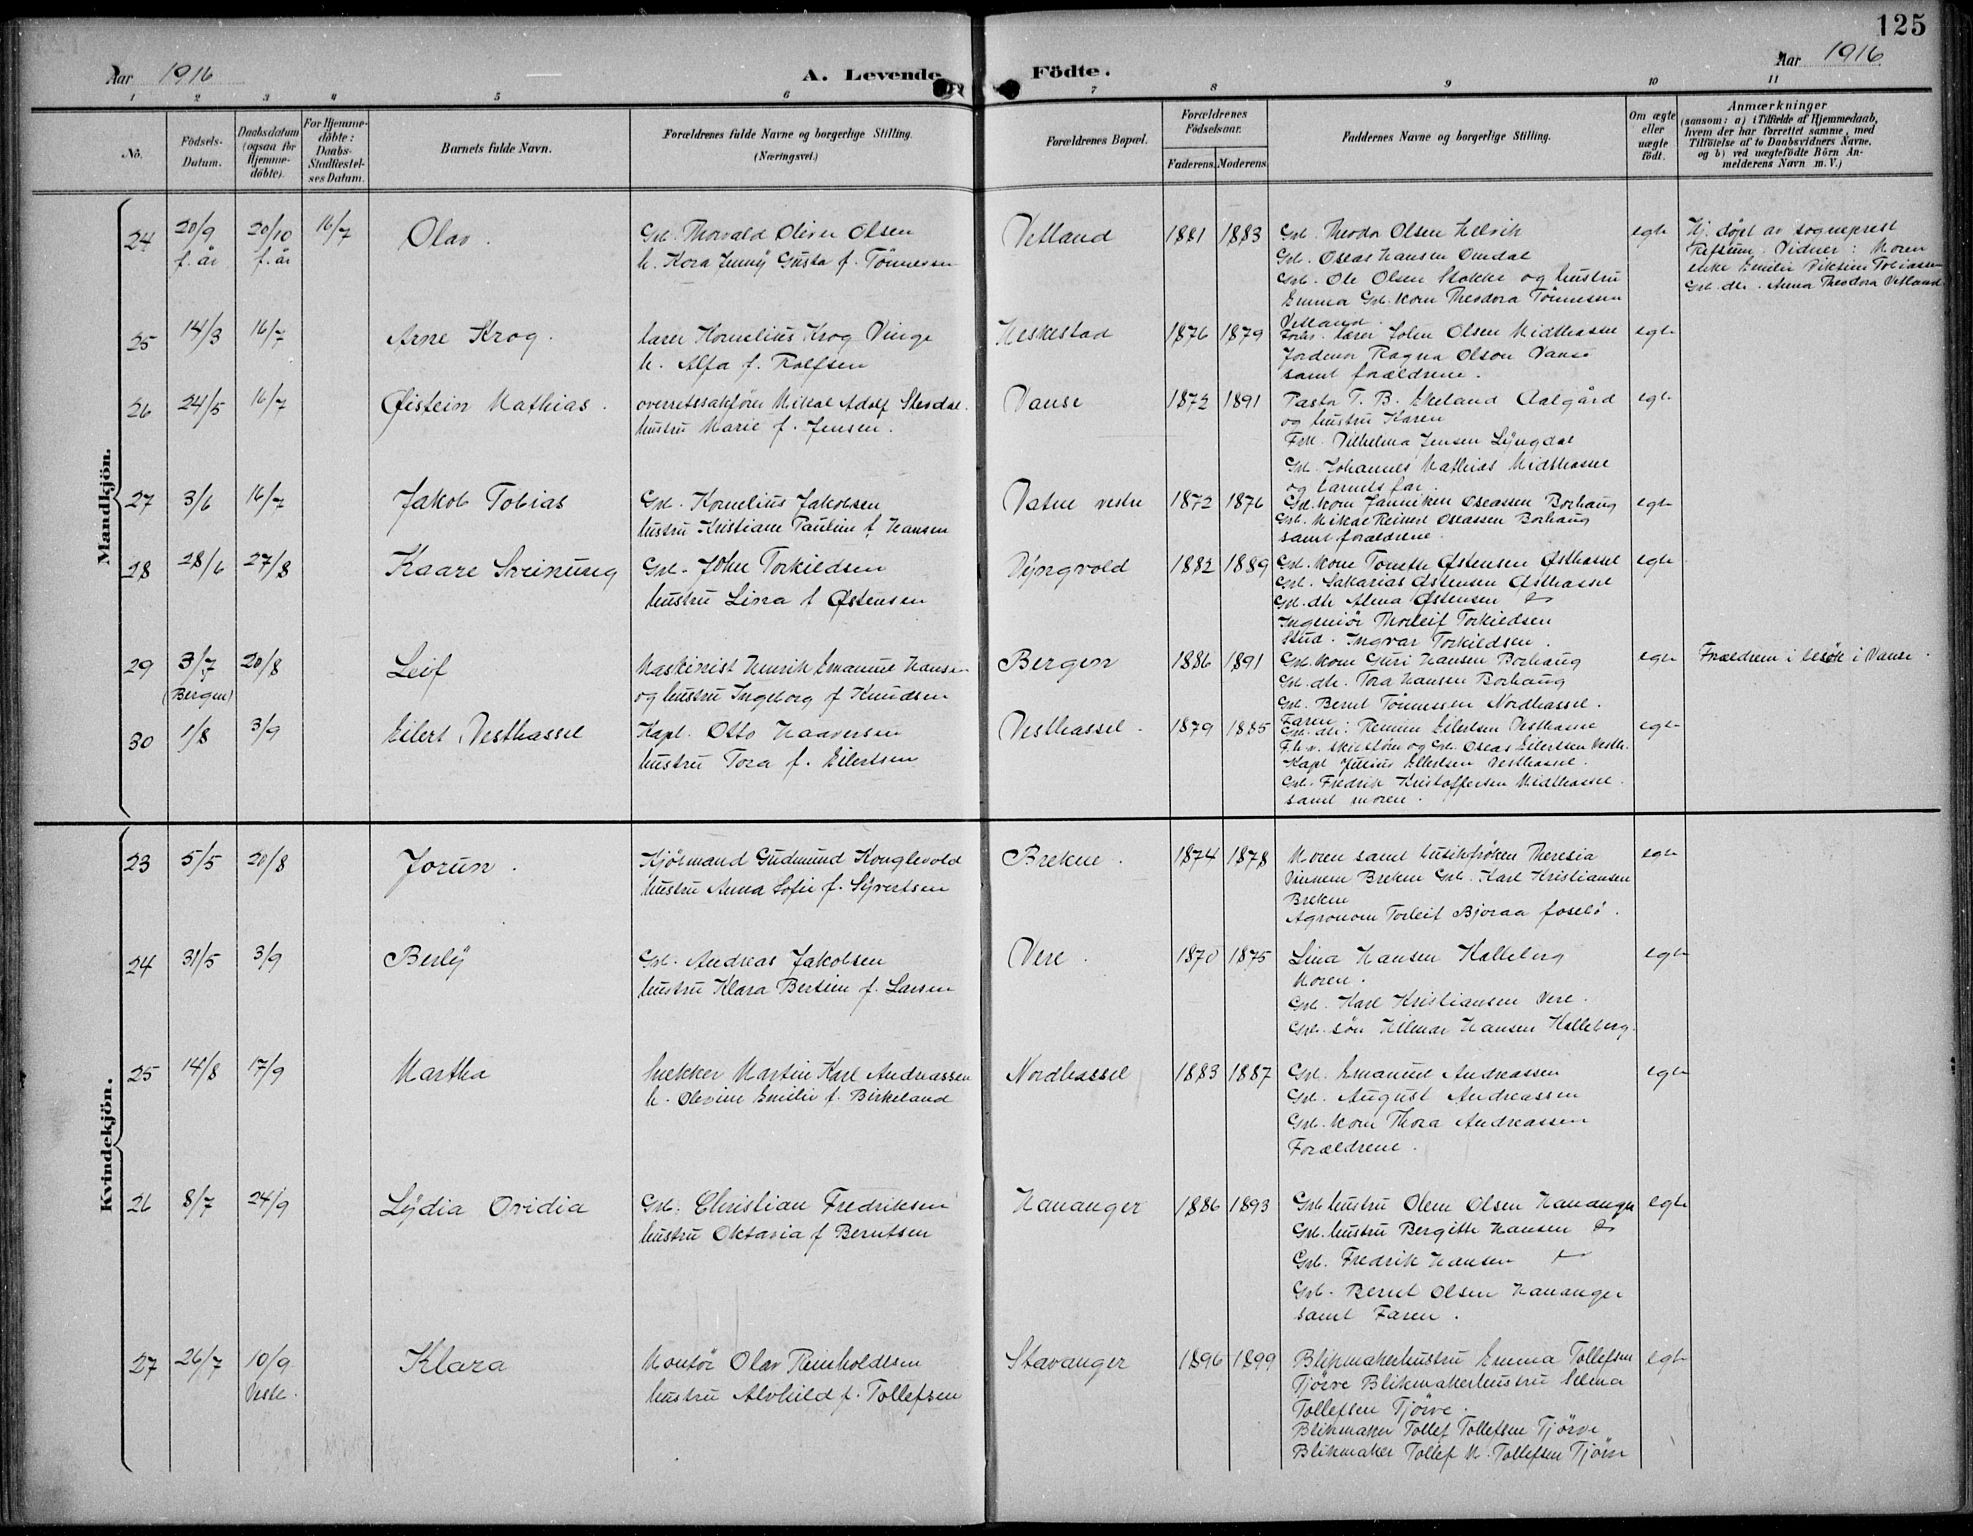 125
Aar 1916
A. Levende Födte.
Aar 1916
1 2 3 4 5 6 7 8 9 10 11
No.
Födsels-Datum.
Daabsdatum (ogsaa for Hjemme-döbte).
For Hjemme-döbte: Daabs-Stadfæstel-ses Datum.
Barnets fulde Navn.
Forældrenes fulde Navne og borgerlige Stilling. (Næringsvei.)
Forældrenes Bopæl.
Forældrenes Födselsaar.
Faderens. Moderens.
Faddernes Navne og borgerlige Stilling.
Om ægte eller uægte födt.
Anmærkninger
(saasom: a) i Tilfælde af Hjemmedaab,
hvem der har forrettet samme, med
Tilföielse af to Daabsvidners Navne.
og b) ved uægtefödte Börn An-
melderens Navn m. V.)
Mandkjön.
24 20/9 f. år 20/10 f. år 16/7 Olav.
Grb. Thorvald Oliver Olsen
h. Kora Jenny Gusta f. Tönnessen
Vetland 1881 1883
Grb. Theodor Olsen Helvik
Grb. Oseas Hansen Omdal
Grb. Ole Olsen Stokke og hustru
Emma Grb. kone Theodora Tönnesen
Vetland.
egte
Hj. døpt av sogneprest
Refsum. Vidner: Moren
enke Emilie Tobiassen
Grb. dtr. Anna Theodora Vetland
25 14/3 16/7 Arne Krog.
lærer Kornelius Krog Vinge
h. Alfa f. Rolfsen
Heskestad 1876 1879
Forhv. lærer John Olsen Midthassel
Jordemor Ragna Olson Vanse
samt forældrene.
egte
26 24/5 16/7 Øistein Mathias.
overretssakfører Mikal Adolf Skeodal.
hustru Marie f. Jensen.
Vanse 1872 1891
Pastor T. B. Ekeland Aalgård
og hustru Karen
Frk. Vilhelma Jensen Lyngdal
Grb. Johannes Mathias Midthassel
og barnets far.
egte
27 3/6 16/7 Jakob Tobias
Grb. Kornelius Jakobsen
hustru Kristiane Pauline f. Hansen
Vatne vestre 1872 1876
Grb. kone Janniken Oseassen Borhaug
Grb. Mikal Reinert Oseassen Borhaug
samt forældrene.
egte
28 28/6 27/8 Kaare Sveinung
Grb. John Torkildsen
hustru Lina f Østensen
Dyngvold 1882 1889
Grb. kone Tomette Østensen Østhassel
Grb. Sakarias Østensen Østhassel
Grb. dtr Alma Østensen
Ingeniør Thorleif Torkildsen
Stud. Ingvar Torkildsen.
egte
29 3/7 (Bergen) 20/8 Leif
Maskinist Henrik Emanuel Hansen
og hustru Ingeborg f Knudsen
Bergen 1886 1891
Grb. kone Guri Hansen Borhaug
Grb. dtr. Tora Hansen Borhaug
Grb. Bernt Tönnessen Nordhassel.
Faren
egte
Forældrene i besøk i Vanse.
30 1/8 3/9 Eilert Vesthassel
Kapt. Otto Haaversen
hustru Tora f. Eilertsen
Vesthassel. 1879 1885
Grb. dtr: Eilertsen Vesthassel
F.h.v. og Grb. Oseas Eilertsen Vesth.
Kapt Julius Eilertsen Vesthassel.
Grb. Fredrik Kristoffersen Midthassel.
samt moren.
egte
Kvindekjön.
23 5/5 20/8 Jorun.
Kjöbmand Gudmund Konglevold
hustru Anna Sofie f. Syvertsen
Brekne. 1874 1878
Moren samt butikfrøken Theresia
Brekne Grb. Karl Kristiansen
Brekne
Agronom Torleif Bjoraa
egte
24 31/5 3/9 Berly
Grb. Andreas Jakobsen
hustru Klara Bertine f. Larsen
Vere. 1870 1875
Lina Hansen Kalleberg
Moren.
Grb. Karl Kristiansen Vere.
Grb. søn Hilmar Hansen Kalleberg.
egte
25 14/8 17/9 Martha
Martin Karl Andreassen
h. Olevine Emilie f. Birkeland
Nordhassel 1883 1887
Grb. Emanuel Andreassen
Grb. August Andreassen
Grb. kone Thora Andreassen
Forældrene.
egte
26 8/7 24/9 Lydia Ovidia
Grb. Christian Fredriksen
hustru Oktavia f Berntsen
Hananger 1886 1893
Grb hustru Olene Olsen Hananger
Grb. hustru Bergitte Hansen
Grb. Fredrik Hansen
Grb. Bernt Olsen Hananger
samt Faren.
egte
27 26/7 10/9 Klara
Montör Olav Reinholdtsen
hustru Alvhild f. Tollefsen
Stavanger 1896 1899
Blikmakerhustru Emma Tollefsen
Tjørve Blikmakerhustru Selma
Tollefsen Tjørve.
Blikmaker Tollef Tollefsen Tjørve
Blikmaker Tollef M. Tollefsen Tjørve
egte